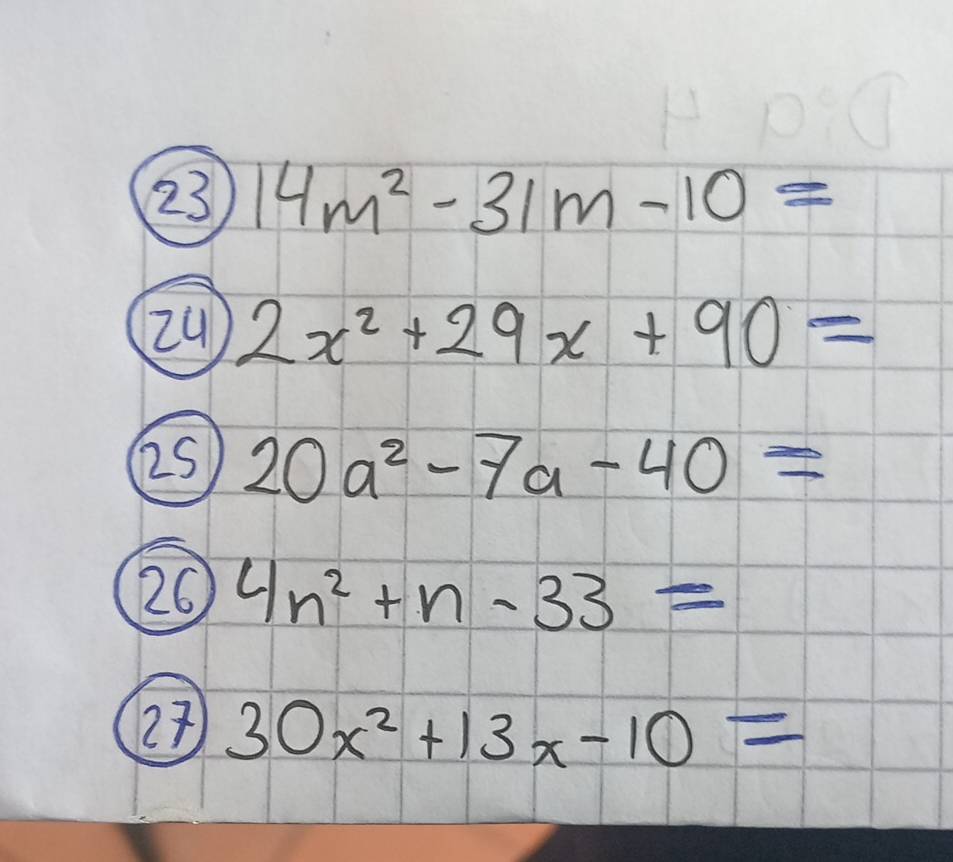 Dia H
23 14m² - 31m - 10 =
24 2x² + 29x + 90 =
25 20a² - 7a - 40 =
26 4n² + n - 33 =
27 30x² + 13x - 10 =